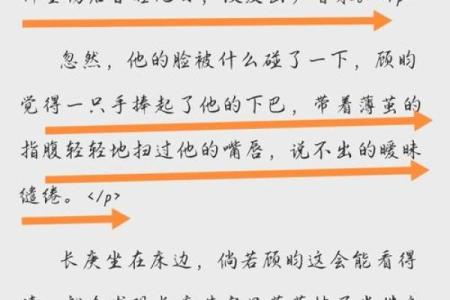 。</p>
忽然，他的脸被什么碰了一下，顾昀
觉得一只手捧起了他的下巴，带着薄茧的
指腹轻轻地扫过他的嘴唇，说不出的暧昧
缱绻。</p>
长庚坐在床边，倘若顾昀这会能看得